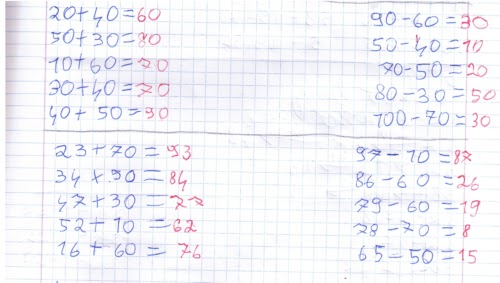 20+40=60 90-60=30
50+30=80 50-40=10
10+60=70 70-50=20
30+40=70 80-30=50
40+50=90 100-70=30
23+70=93 97-10=87
34+50=84 86-60=26
47+30=77 79-60=19
52+10=62 78-70=8
16+60=76 65-50=15